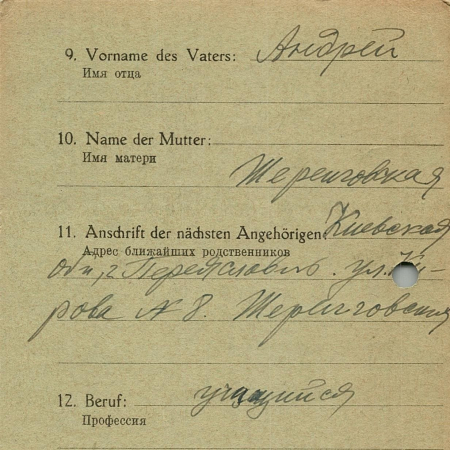 9. Vorname des Vaters: Андрей
Имя отца
10. Name der Mutter:
Имя матери
Жеренговская
11. Anschrift der nächsten Angehörigen: Киевская
Адрес ближайших родственников
обл, г Переяславль. ул. Ки-
рова N 8. Жеренговская
12. Beruf: учащийся
Профессия